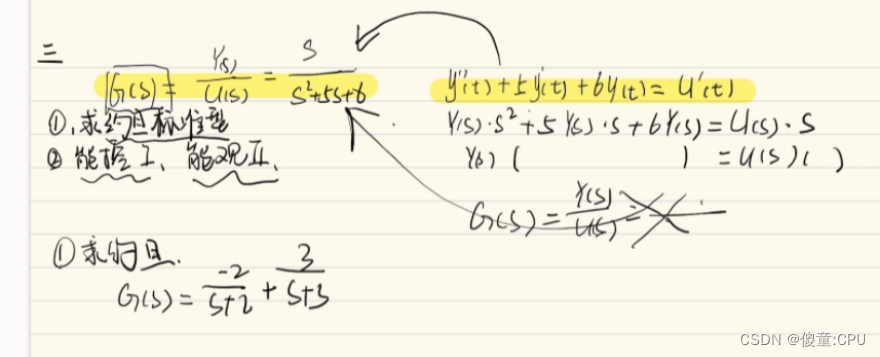 三
G(s) = Y(s)/U(s) = s/(s²+5s+6)
y''(t)+5y'(t)+6y(t)=u'(t)
①.求约旦标准型
Y(s)·s²+5Y(s)·s+6Y(s)=U(s)·s
② 能控I、能观II.
Y(s) ( ) =U(s)( )
G(s)=Y(s)/U(s)=
①求约旦.
G(s)= -2/(s+2) + 3/(s+3)
CSDN @傻童:CPU